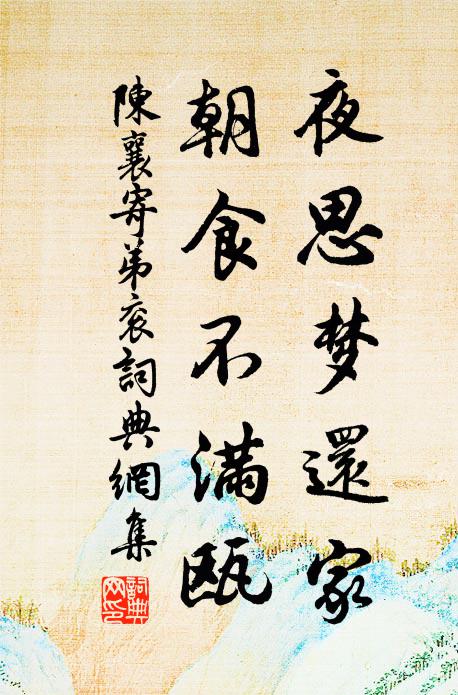 夜思梦還家
朝食不满瓯
陳襄寄弟衮詞典網集
詞典